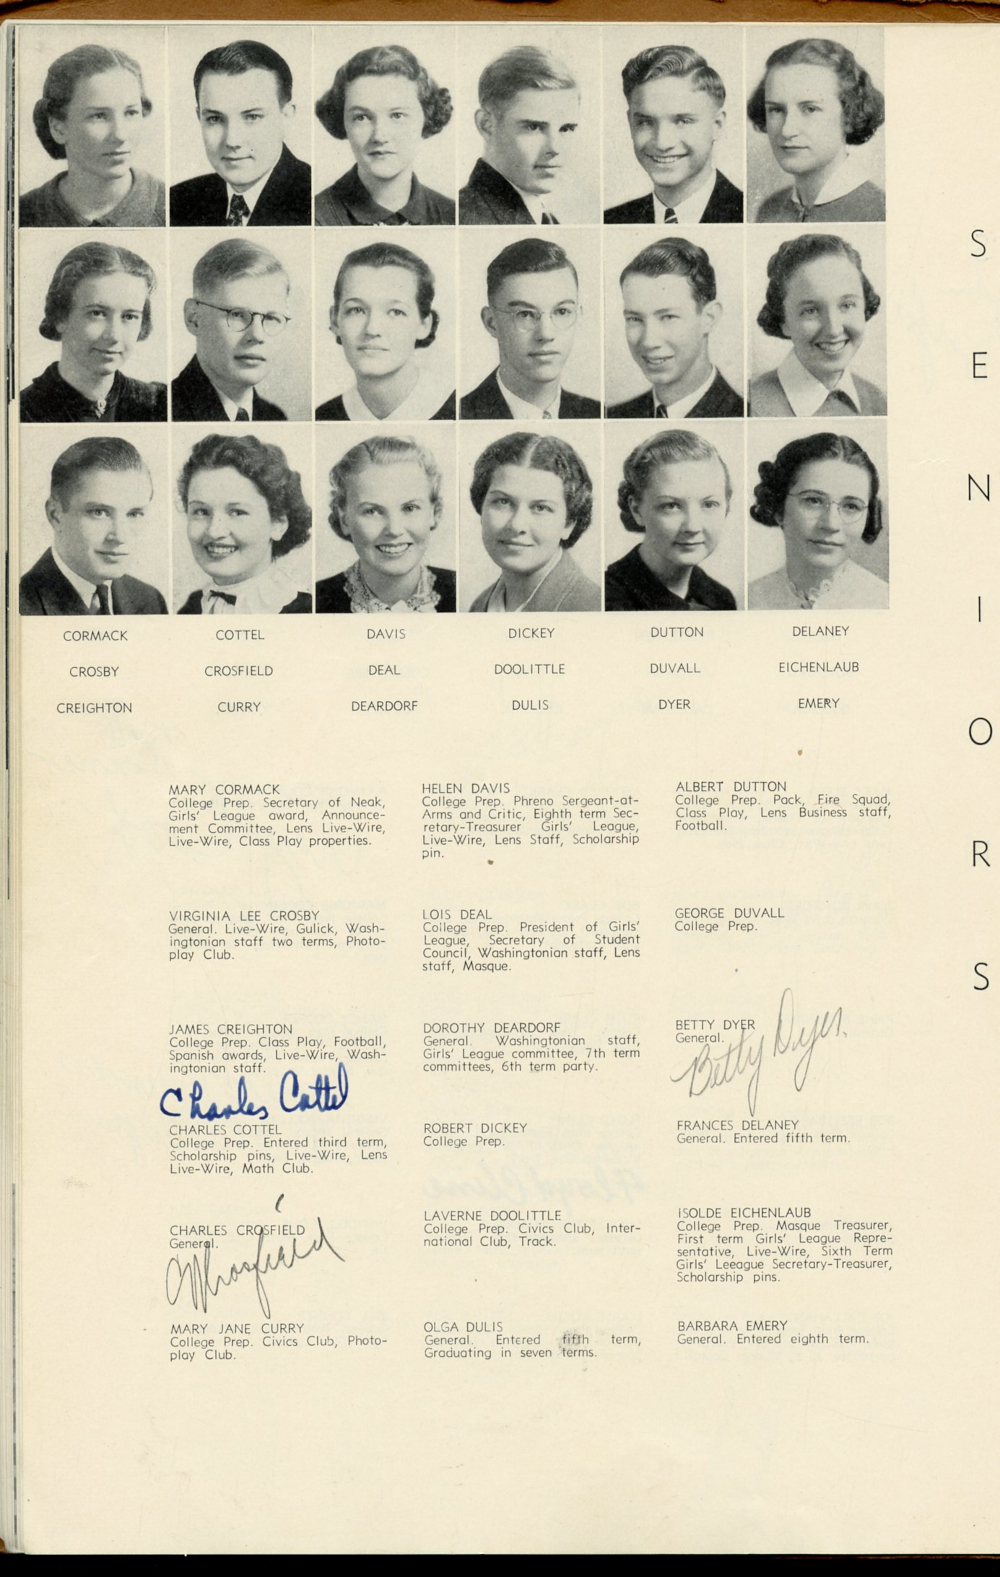 CORMACK COTTEL DAVIS DICKEY DUTTON DELANEY
CROSBY CROSFIELD DEAL DOOLITTLE DUVALL EICHENLAUB
CREIGHTON CURRY DEARDORF DULIS DYER EMERY
MARY CORMACK
College Prep. Secretary of Neak,
Girls' League award, Announce-
ment Committee, Lens Live-Wire,
Live-Wire, Class Play properties.
VIRGINIA LEE CROSBY
General. Live-Wire, Gulick, Wash-
ingtonian staff two terms, Photo-
play Club.
JAMES CREIGHTON
College Prep. Class Play, Football,
Spanish awards, Live-Wire, Wash-
ingtonian staff.
Charles Cottel
CHARLES COTTEL
College Prep. Entered third term,
Scholarship pins, Live-Wire, Lens
Live-Wire, Math Club.
CHARLES CROSFIELD
General.
MARY JANE CURRY
College Prep. Civics Club, Photo-
play Club.
HELEN DAVIS
College Prep. Phreno Sergeant-at-
Arms and Critic, Eighth term Sec-
retary-Treasurer Girls' League,
Live-Wire, Lens Staff, Scholarship
pin.
LOIS DEAL
College Prep. President of Girls'
League, Secretary of Student
Council, Washingtonian staff, Lens
staff, Masque.
DOROTHY DEARDORF
General. Washingtonian staff,
Girls' League committee, 7th term
committees, 6th term party.
ROBERT DICKEY
College Prep.
LAVERNE DOOLITTLE
College Prep. Civics Club, Inter-
national Club, Track.
OLGA DULIS
General. Entered fifth term,
Graduating in seven terms.
ALBERT DUTTON
College Prep. Pack, Fire Squad,
Class Play, Lens Business staff,
Football.
GEORGE DUVALL
College Prep.
BETTY DYER
General.
Betty Dyer
FRANCES DELANEY
General. Entered fifth term.
ISOLDE EICHENLAUB
College Prep. Masque Treasurer,
First term Girls' League Repre-
sentative, Live-Wire, Sixth Term
Girls' Leeague Secretary-Treasurer,
Scholarship pins.
BARBARA EMERY
General. Entered eighth term.
SENIORS